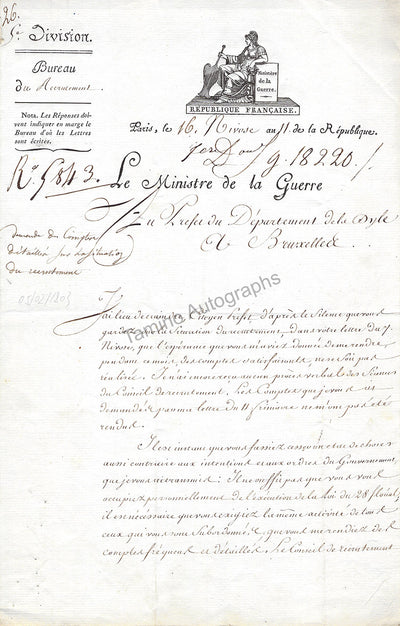 26.
5e. Division.
Bureau
du Recrutement.
Nota. Les Réponses doi-
vent indiquer en marge le
Bureau d'où les Lettres
sont écrites.
Ministère
de la
Guerre.
RÉPUBLIQUE FRANÇAISE.
Paris, le 16 Nivose an 11 de la République.
g. 18220 /.
Ro. 5843. Le Ministre de la Guerre
Au Préfet du Département de la Dyle
A Bruxelles
demande de Comptes
détaillés sur la situation
du recrutement
05/02/1803
Tamino Autographs
J'ai lieu de craindre, Citoyen Préfet, d'après le Silence que vous
gardez sur la Situation du recrutement, dans votre lettre du 7
Nivose, que l'espérance que vous m'aviez donnée de me rendre,
pendant ce mois, des comptes satisfaisants, ne se soit pas
réalisée. Je n'ai encore reçu aucun procès verbal des Séances
du Conseil de recrutement. Les Comptes que je vous ai
demandés par ma lettre du 11 frimaire ne m'ont pas été
rendus.
Il est instant que vous fassiez cesser un état de choses
aussi contraire aux intentions et aux ordres du Gouvernement,
que je vous ai transmis: Il ne suffit pas que vous vous
occupiez personnellement de l'exécution de la loi du 28 floréal;
il est nécessaire que vous exigiez la même activité de tous
ceux qui vous sont Subordonnés, et que vous me rendiez des
comptes fréquents et détaillés. Le Conseil de recrutement